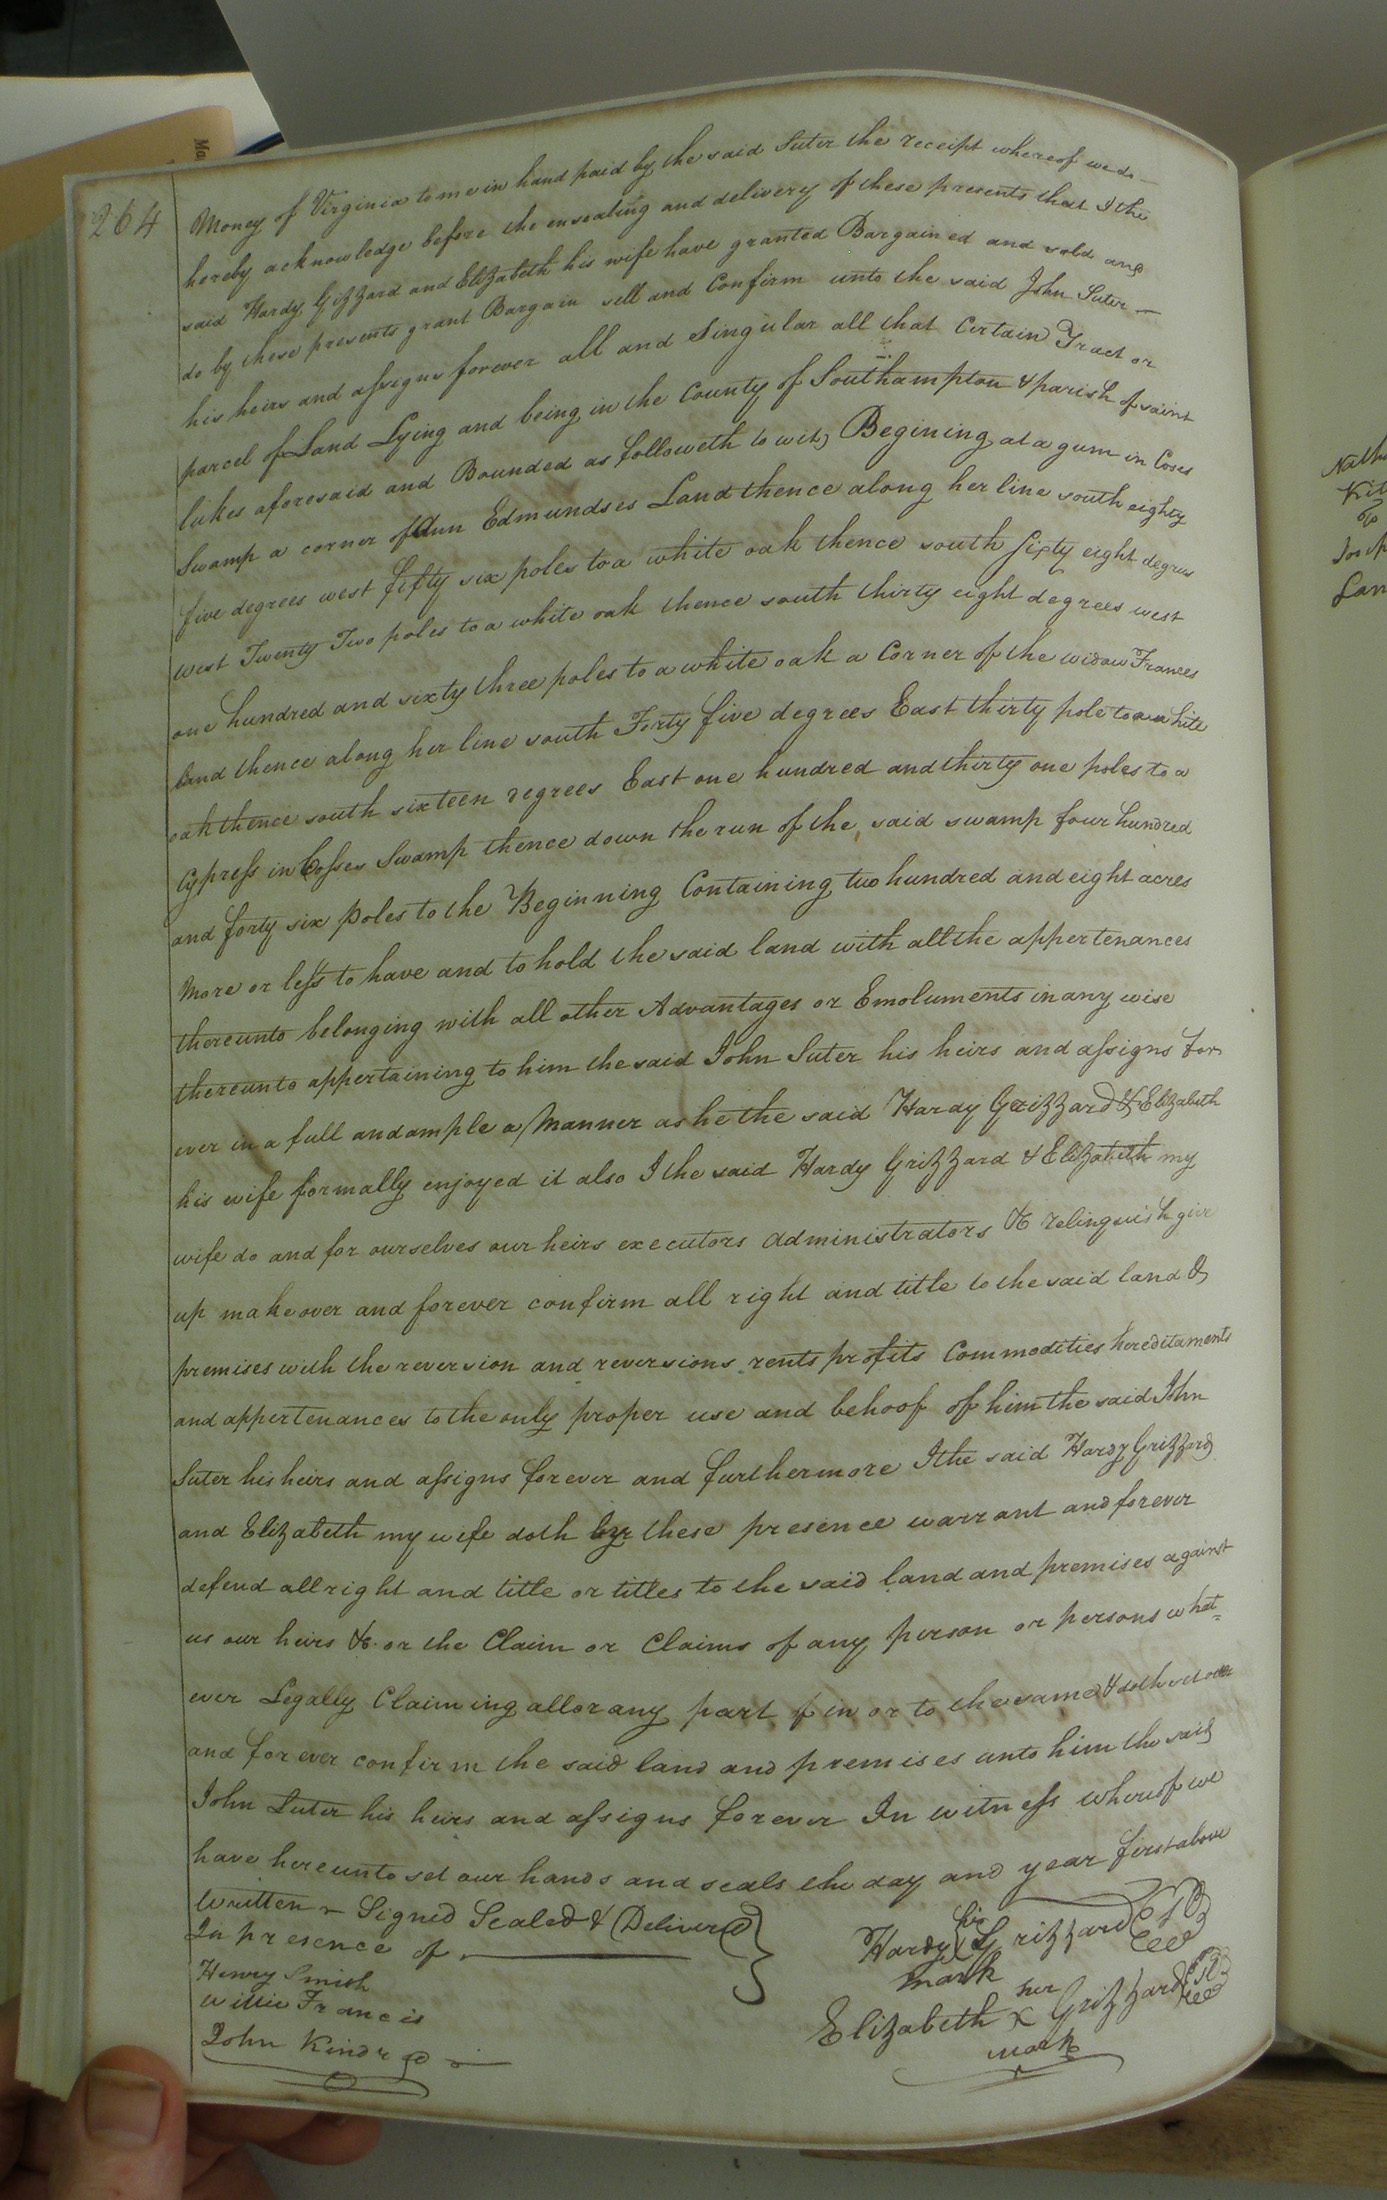 264
Money of Virginia to me in hand paid by the said Suter the receipt whereof we do
hereby acknowledge before the ensealing and delivery of these presents that I the
said Hardy Grizzard and Elizabeth his wife have granted Bargained and sold and
do by these presents grant Bargain sell and Confirm unto the said John Suter
his heirs and assigns forever all and Singular all that Certain Tract or
parcel of Land Lying and being in the County of Southampton & parish of saint
lukes aforesaid and Bounded as followeth to wit, Begining at a gum in Coses
Swamp a corner of Ann Edmundses Land thence along her line south eighty
five degrees west fifty six poles to a white oak thence south sixty eight degrees
west Twenty Two poles to a white oak thence south thirty eight degrees west
one hundred and sixty three poles to a white oak a Corner of the widow Frances
land thence along her line south Forty five degrees East thirty pole to a white
oak thence south sixteen degrees East one hundred and thirty one poles to a
Cypress in Cosses Swamp thence down the run of the said swamp four hundred
and forty six poles to the Beginning Containing two hundred and eight acres
More or less to have and to hold the said land with all the appertenances
thereunto belonging with all other Advantages or Emoluments in any wise
thereunto appertaining to him the said John Suter his heirs and assigns for
ever in a full and ample a Manner as he the said Hardy Grizzard & Elizabeth
his wife formally enjoyed it also I the said Hardy Grizzard & Elizabeth my
wife do and for ourselves our heirs executors administrators &c relinquish give
up make over and forever confirm all right and title to the said land &
premises with the reversion and reversions rents profits Commodities hereditaments
and appertenances to the only proper use and behoof of him the said John
Suter his heirs and assigns forever and furthermore I the said Hardy Grizzard
and Elizabeth my wife doth by these presence warrant and forever
defend all right and title or titles to the said land and premises against
us our heirs &c. or the Claim or Claims of any person or persons what=
ever Legally Claiming all or any part of in or to the same & doth set over
and forever confirm the said land and premises unto him the said
John Suter his heirs and assigns forever In witness whereof we
have hereunto set our hands and seals the day and year first above
written Signed Sealed & Delivered
In presence of
Henry Smith
Willie Francis
John Kindred
his
Hardy X Grizzard
mark
her
Elizabeth X Grizzard
mark
Ma
To
Lan